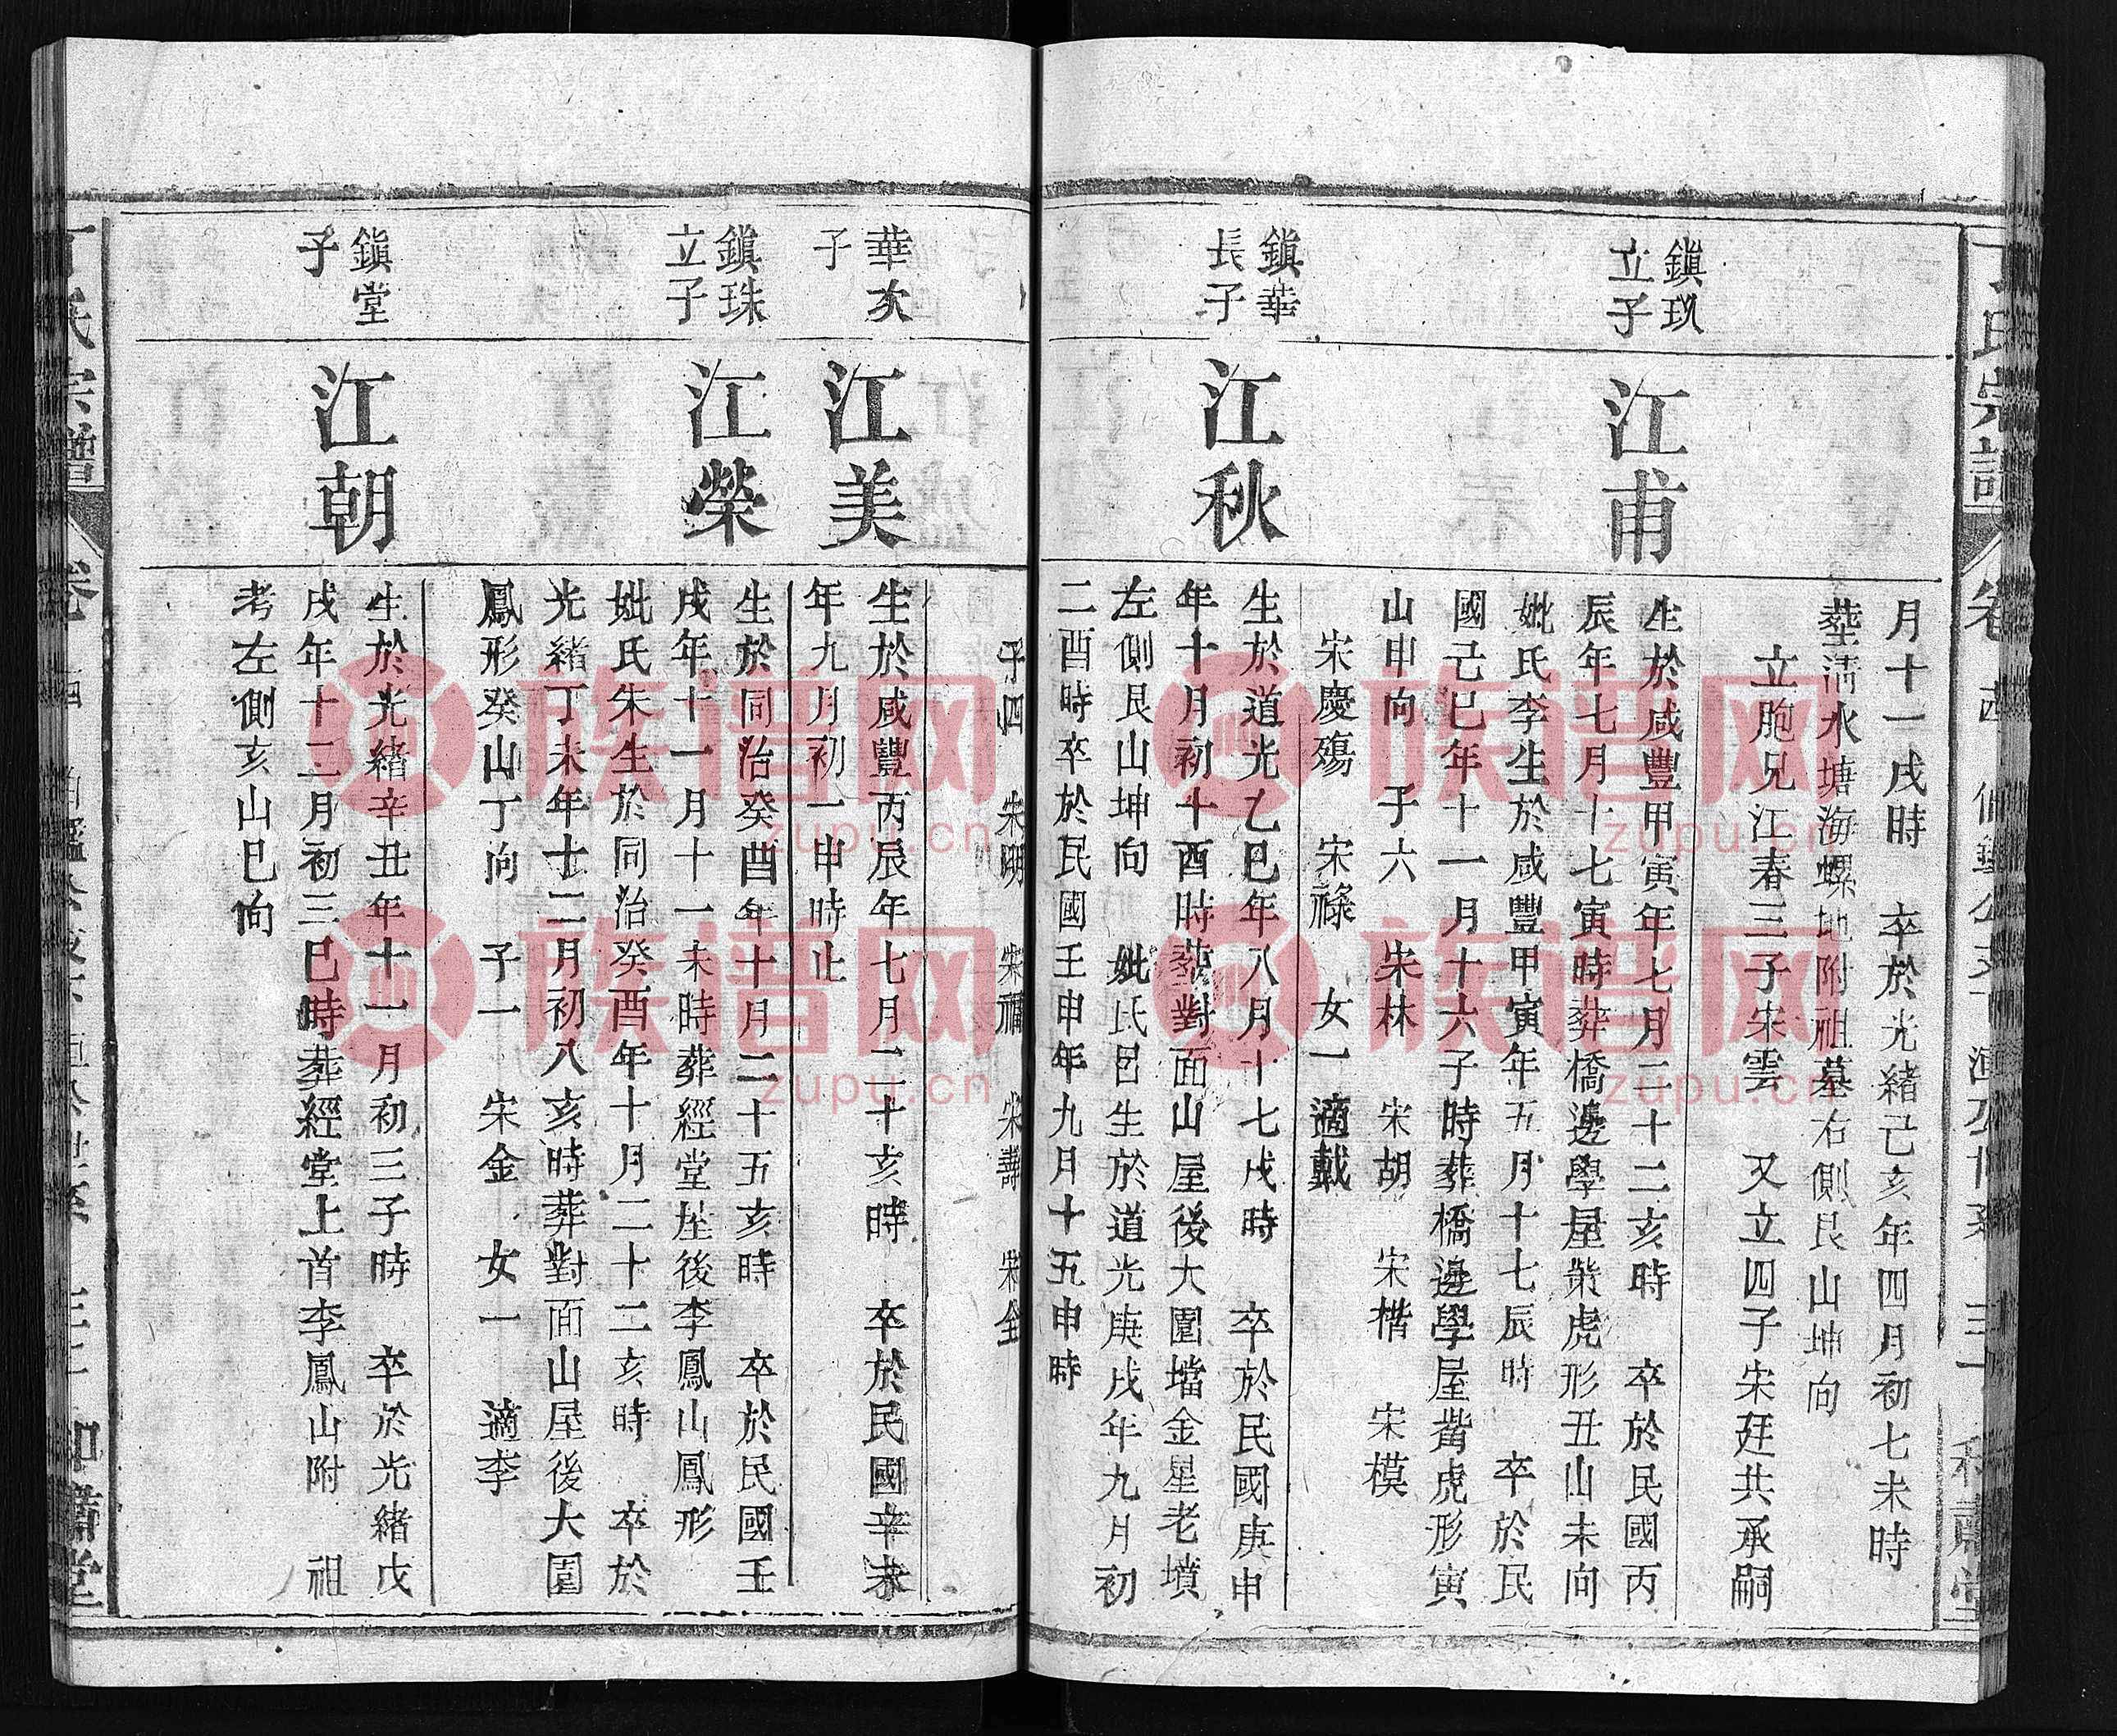 丁氏宗譜
月十一戌時　卒於光緒己亥年四月初七未時
塟清水塘海螺地附祖墓右側艮山坤向
立胞兄江春三子宋雲　又立四子宋廷共承嗣
鎭玖
立子
江甫
生於咸豐甲寅年七月二十二亥時　卒於民國丙
辰年七月十七寅時葬橋邊學屋柴虎形丑山未向
妣氏李生於咸豐甲寅年五月十七辰時　卒於民
國己巳年十一月十六子時葬橋邊學屋背虎形寅
山申向　子六　宋林　宋胡　宋楷　宋模
宋慶殤　宋祿　女一適戴
鎭華
長子
江秋
生於道光乙巳年八月十七戌時　卒於民國庚申
年十月初十酉時塟對面山屋後大園壋金星老墳
左側艮山坤向　妣氏呂生於道光庚戌年九月初
二酉時卒於民國壬申年九月十五申時
子四　宋明　宋禰　宋壽　宋全
華次
子
江美
生於咸豐丙辰年七月二十亥時　卒於民國辛未
年九月初一申時止
鎭珠
立子
江榮
生於同治癸酉年十月二十五亥時　卒於民國壬
戌年十一月十一未時葬經堂坐後李鳳山鳳形
妣氏朱生於同治癸酉年十月二十二亥時　卒於
光緒丁未年十二月初八亥時葬對面山屋後大園
鳳形癸山丁向　子一　宋金　女一　適李
鎭堂
子
江朝
生於光緒辛丑年十一月初三子時　卒於光緒戊
戌年十二月初三巳時葬經堂上首李鳳山附　祖
考左側亥山巳向
氏宗譜